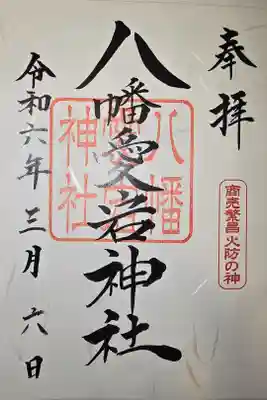 奉拝
商売繁昌 火防の神
八幡愛宕神社
令和六年三月六日